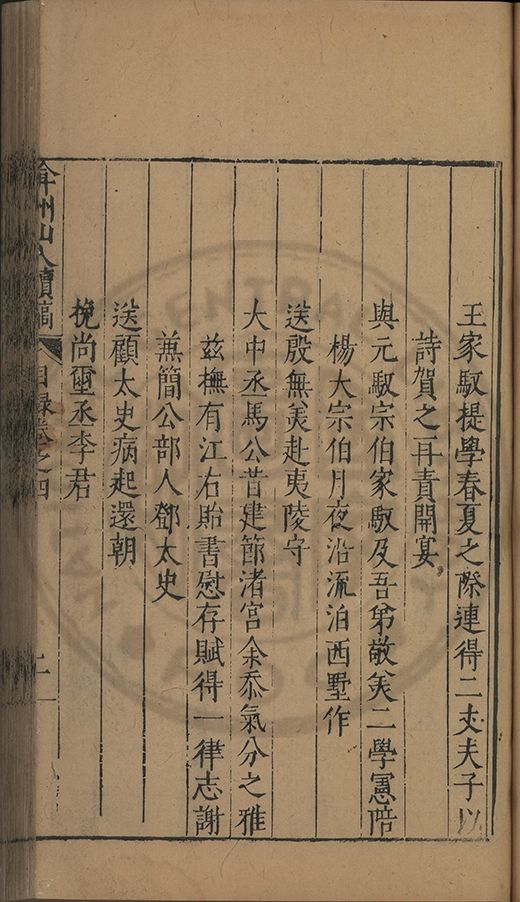 王家馭提學春夏之際連得二丈夫子以
詩賀之再責開宴
與元馭宗伯家馭及吾弟敬美二學憲陪
楊大宗伯月夜沿流泊西墅作
送殷無美赴夷陵守
大中丞馬公昔建節渚宮余忝氣分之雅
茲撫有江右貽書慰存賦得一律志謝
兼簡公部人鄧太史
送顧太史病起還朝
挽尚璽丞李君
弇州山人續稿 目錄卷之四 二